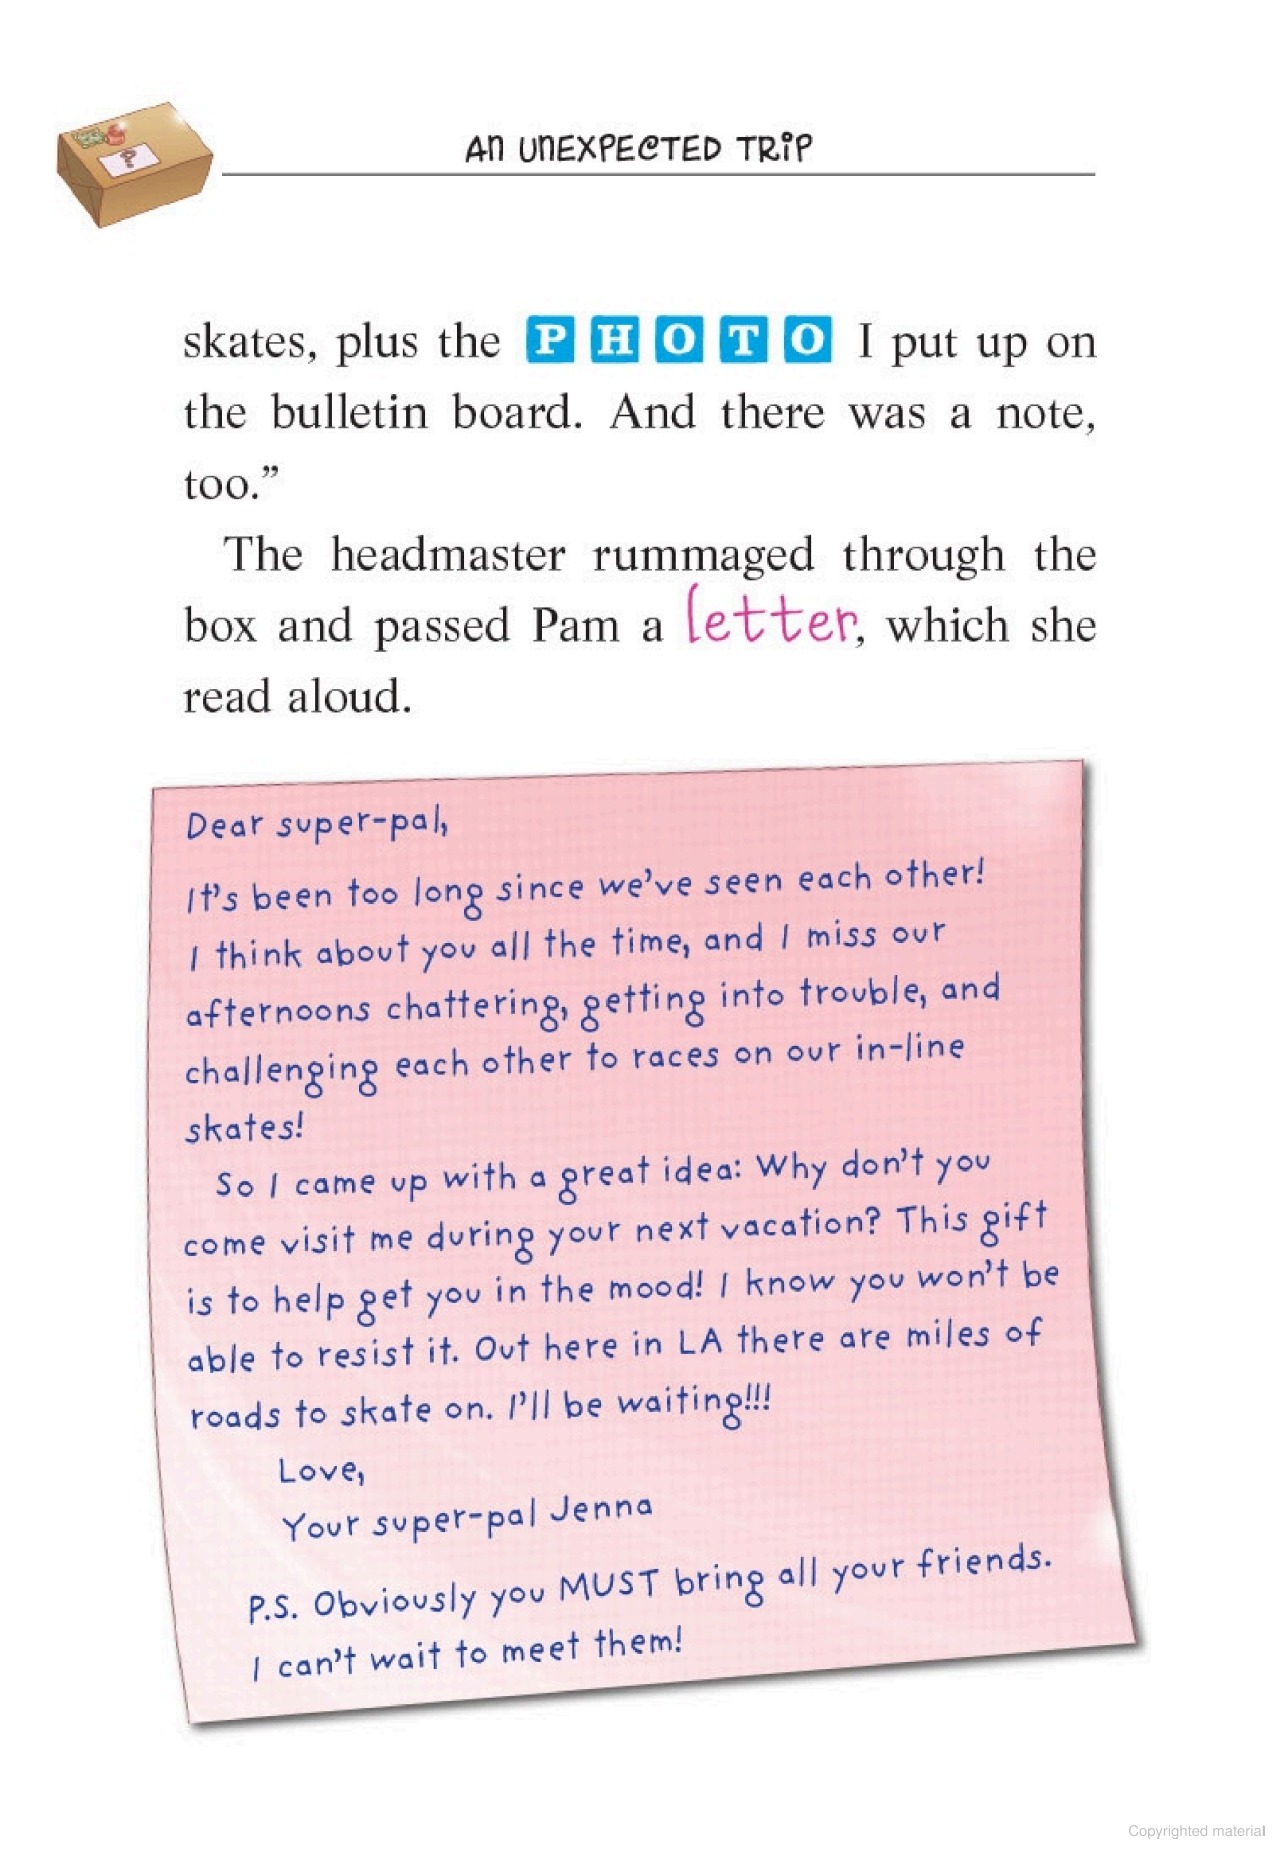 AN UNEXPECTED TRIP
skates, plus the PHOTO I put up on
the bulletin board. And there was a note,
too.”
The headmaster rummaged through the
box and passed Pam a letter, which she
read aloud.
Dear super-pal,
It’s been too long since we’ve seen each other!
I think about you all the time, and I miss our
afternoons chattering, getting into trouble, and
challenging each other to races on our in-line
skates!
So I came up with a great idea: Why don’t you
come visit me during your next vacation? This gift
is to help get you in the mood! I know you won’t be
able to resist it. Out here in LA there are miles of
roads to skate on. I’ll be waiting!!!
Love,
Your super-pal Jenna
P.S. Obviously you MUST bring all your friends.
I can’t wait to meet them!
Copyrighted material